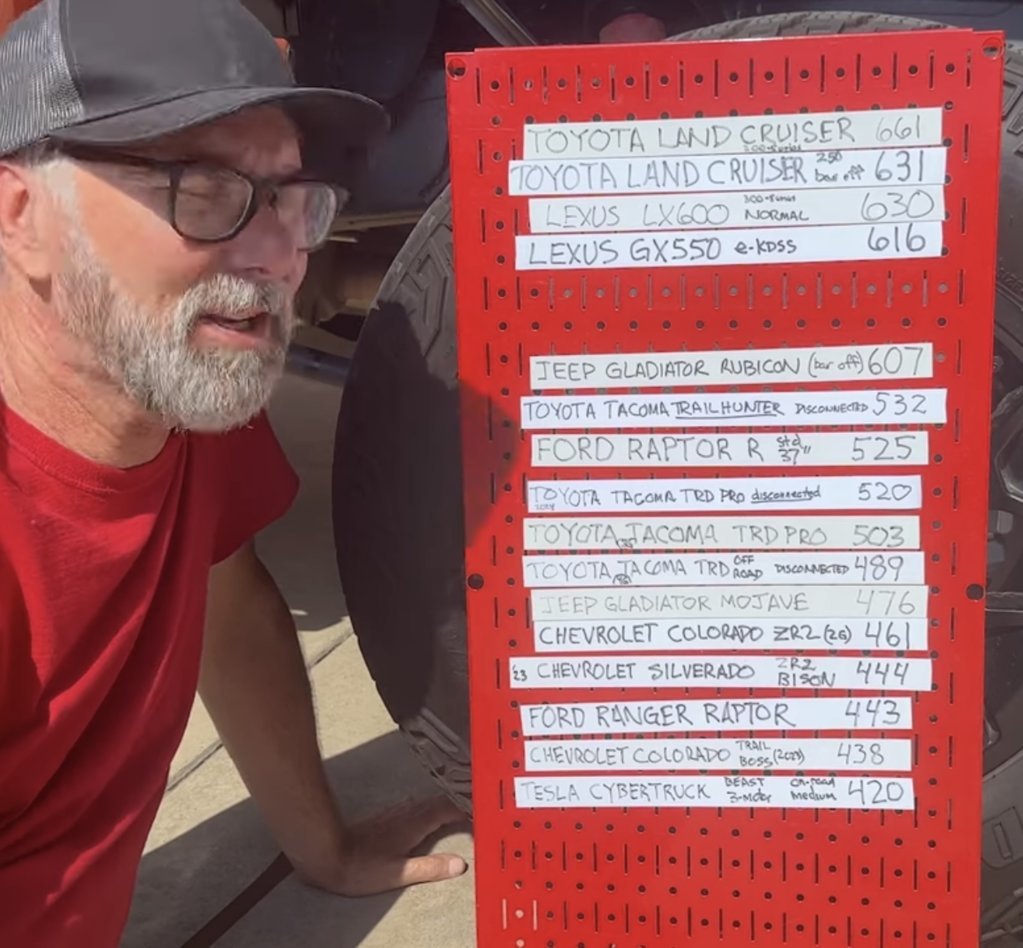 TOYOTA LAND CRUISER 300-Series 661
TOYOTA LAND CRUISER 250 bar off 631
LEXUS LX600 300-Series NORMAL 630
LEXUS GX550 e-KDSS 616
JEEP GLADIATOR RUBICON (bar off) 607
TOYOTA TACOMA TRAILHUNTER DISCONNECTED 532
FORD RAPTOR R std 37" 525
TOYOTA TACOMA TRD PRO disconnected 520
2024
TOYOTA TACOMA TRD PRO 503
TOYOTA TACOMA TRD OFF ROAD DISCONNECTED 489
JEEP GLADIATOR MOJAVE 476
CHEVROLET COLORADO ZR2 (2G) 461
'23 CHEVROLET SILVERADO ZR2 BISON 444
FORD RANGER RAPTOR 443
CHEVROLET COLORADO TRAIL BOSS (2023) 438
TESLA CYBERTRUCK BEAST 3-motor on-road medium 420